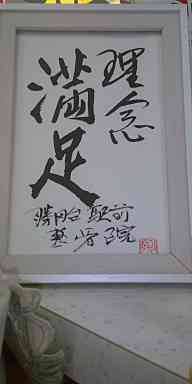 理念
満足
勝田台駅前
整骨院